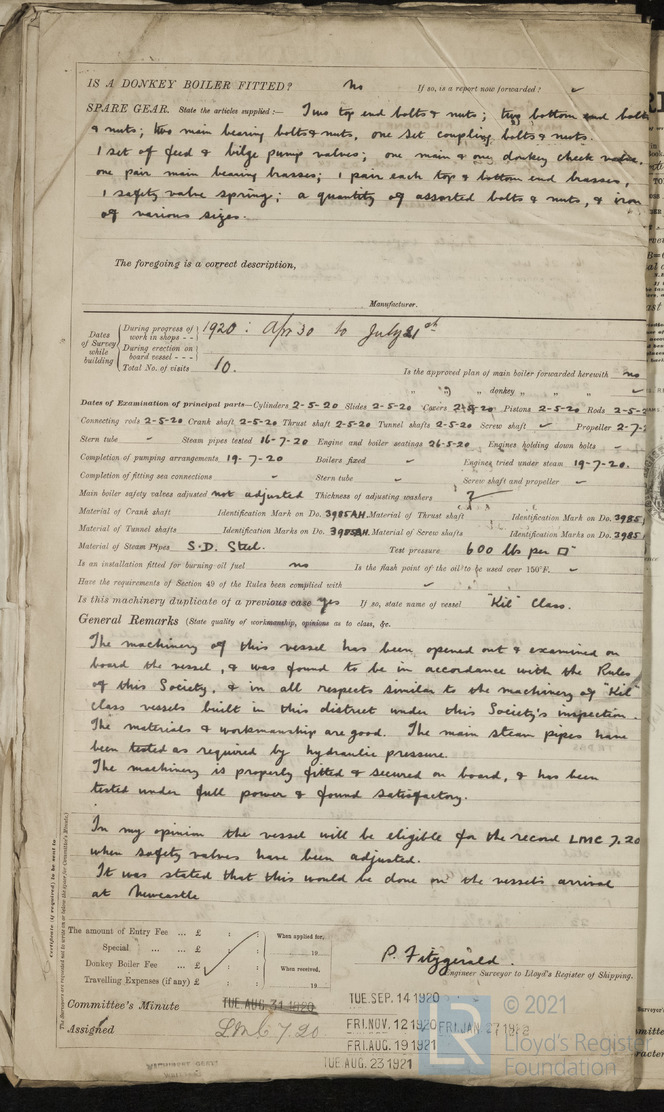 IS A DONKEY BOILER FITTED? no If so, is a report now forwarded? ✓
SPARE GEAR. State the articles supplied:— Two top end bolts & nuts; two bottom end bolts
& nuts; two main bearing bolts & nuts, one set coupling bolts & nuts.
1 set of feed & bilge pump valves; one main & one donkey check valve,
one pair main bearing brasses; 1 pair each top & bottom end brasses,
1 safety valve spring; a quantity of assorted bolts & nuts, & iron
of various sizes.
The foregoing is a correct description,
Manufacturer.
Dates of Survey while building
During progress of work in shops - - 1920: Apr 30 to July 21st
During erection on board vessel - - -
Total No. of visits 10.
Is the approved plan of main boiler forwarded herewith no
" " " donkey " " " ✓
Dates of Examination of principal parts—Cylinders 2-5-20 Slides 2-5-20 Covers 2-5-20 Pistons 2-5-20 Rods 2-5-2
Connecting rods 2-5-20 Crank shaft 2-5-20 Thrust shaft 2-5-20 Tunnel shafts 2-5-20 Screw shaft ✓ Propeller 2-7-
Stern tube ✓ Steam pipes tested 16-7-20 Engine and boiler seatings 26-5-20 Engines holding down bolts ✓
Completion of pumping arrangements 19-7-20 Boilers fixed ✓ Engines tried under steam 19-7-20.
Completion of fitting sea connections ✓ Stern tube ✓ Screw shaft and propeller ✓
Main boiler safety valves adjusted not adjusted Thickness of adjusting washers ?
Material of Crank shaft Identification Mark on Do. 3985AH. Material of Thrust shaft Identification Mark on Do. 3985
Material of Tunnel shafts Identification Marks on Do. 3985AH. Material of Screw shafts Identification Marks on Do. 3985
Material of Steam Pipes S.D. Steel. Test pressure 600 lbs per □"
Is an installation fitted for burning oil fuel no Is the flash point of the oil to be used over 150°F. ✓
Have the requirements of Section 49 of the Rules been complied with ✓
Is this machinery duplicate of a previous case yes If so, state name of vessel "Kil" Class.
General Remarks (State quality of workmanship, opinions as to class, &c.
The machinery of this vessel has been opened out & examined on
board the vessel, & was found to be in accordance with the Rules
of this Society, & in all respects similar to the machinery of "Kil"
class vessels built in this district under this Society's inspection.
The materials & workmanship are good. The main steam pipes have
been tested as required by hydraulic pressure.
The machinery is properly fitted & secured on board, & has been
tested under full power & found satisfactory.
In my opinion the vessel will be eligible for the record LMC 7.20
when safety valves have been adjusted.
It was stated that this would be done on the vessel's arrival
at Newcastle
Certificate (if required) to be sent to
The amount of Entry Fee ... £ : : When applied for,
Special ... £ : : 19
Donkey Boiler Fee ... £ : : When received,
Travelling Expenses (if any) £ : : 19
P. Fitzgerald.
Engineer Surveyor to Lloyd's Register of Shipping.
Committee's Minute TUE. AUG. 31 1920 TUE. SEP. 14 1920
Assigned LMC 7.20 FRI. NOV. 12 1920 FRI. JAN 27
FRI. AUG. 19 1921
TUE. AUG. 23 1921
© 2021
Lloyd's Register
Foundation
LR